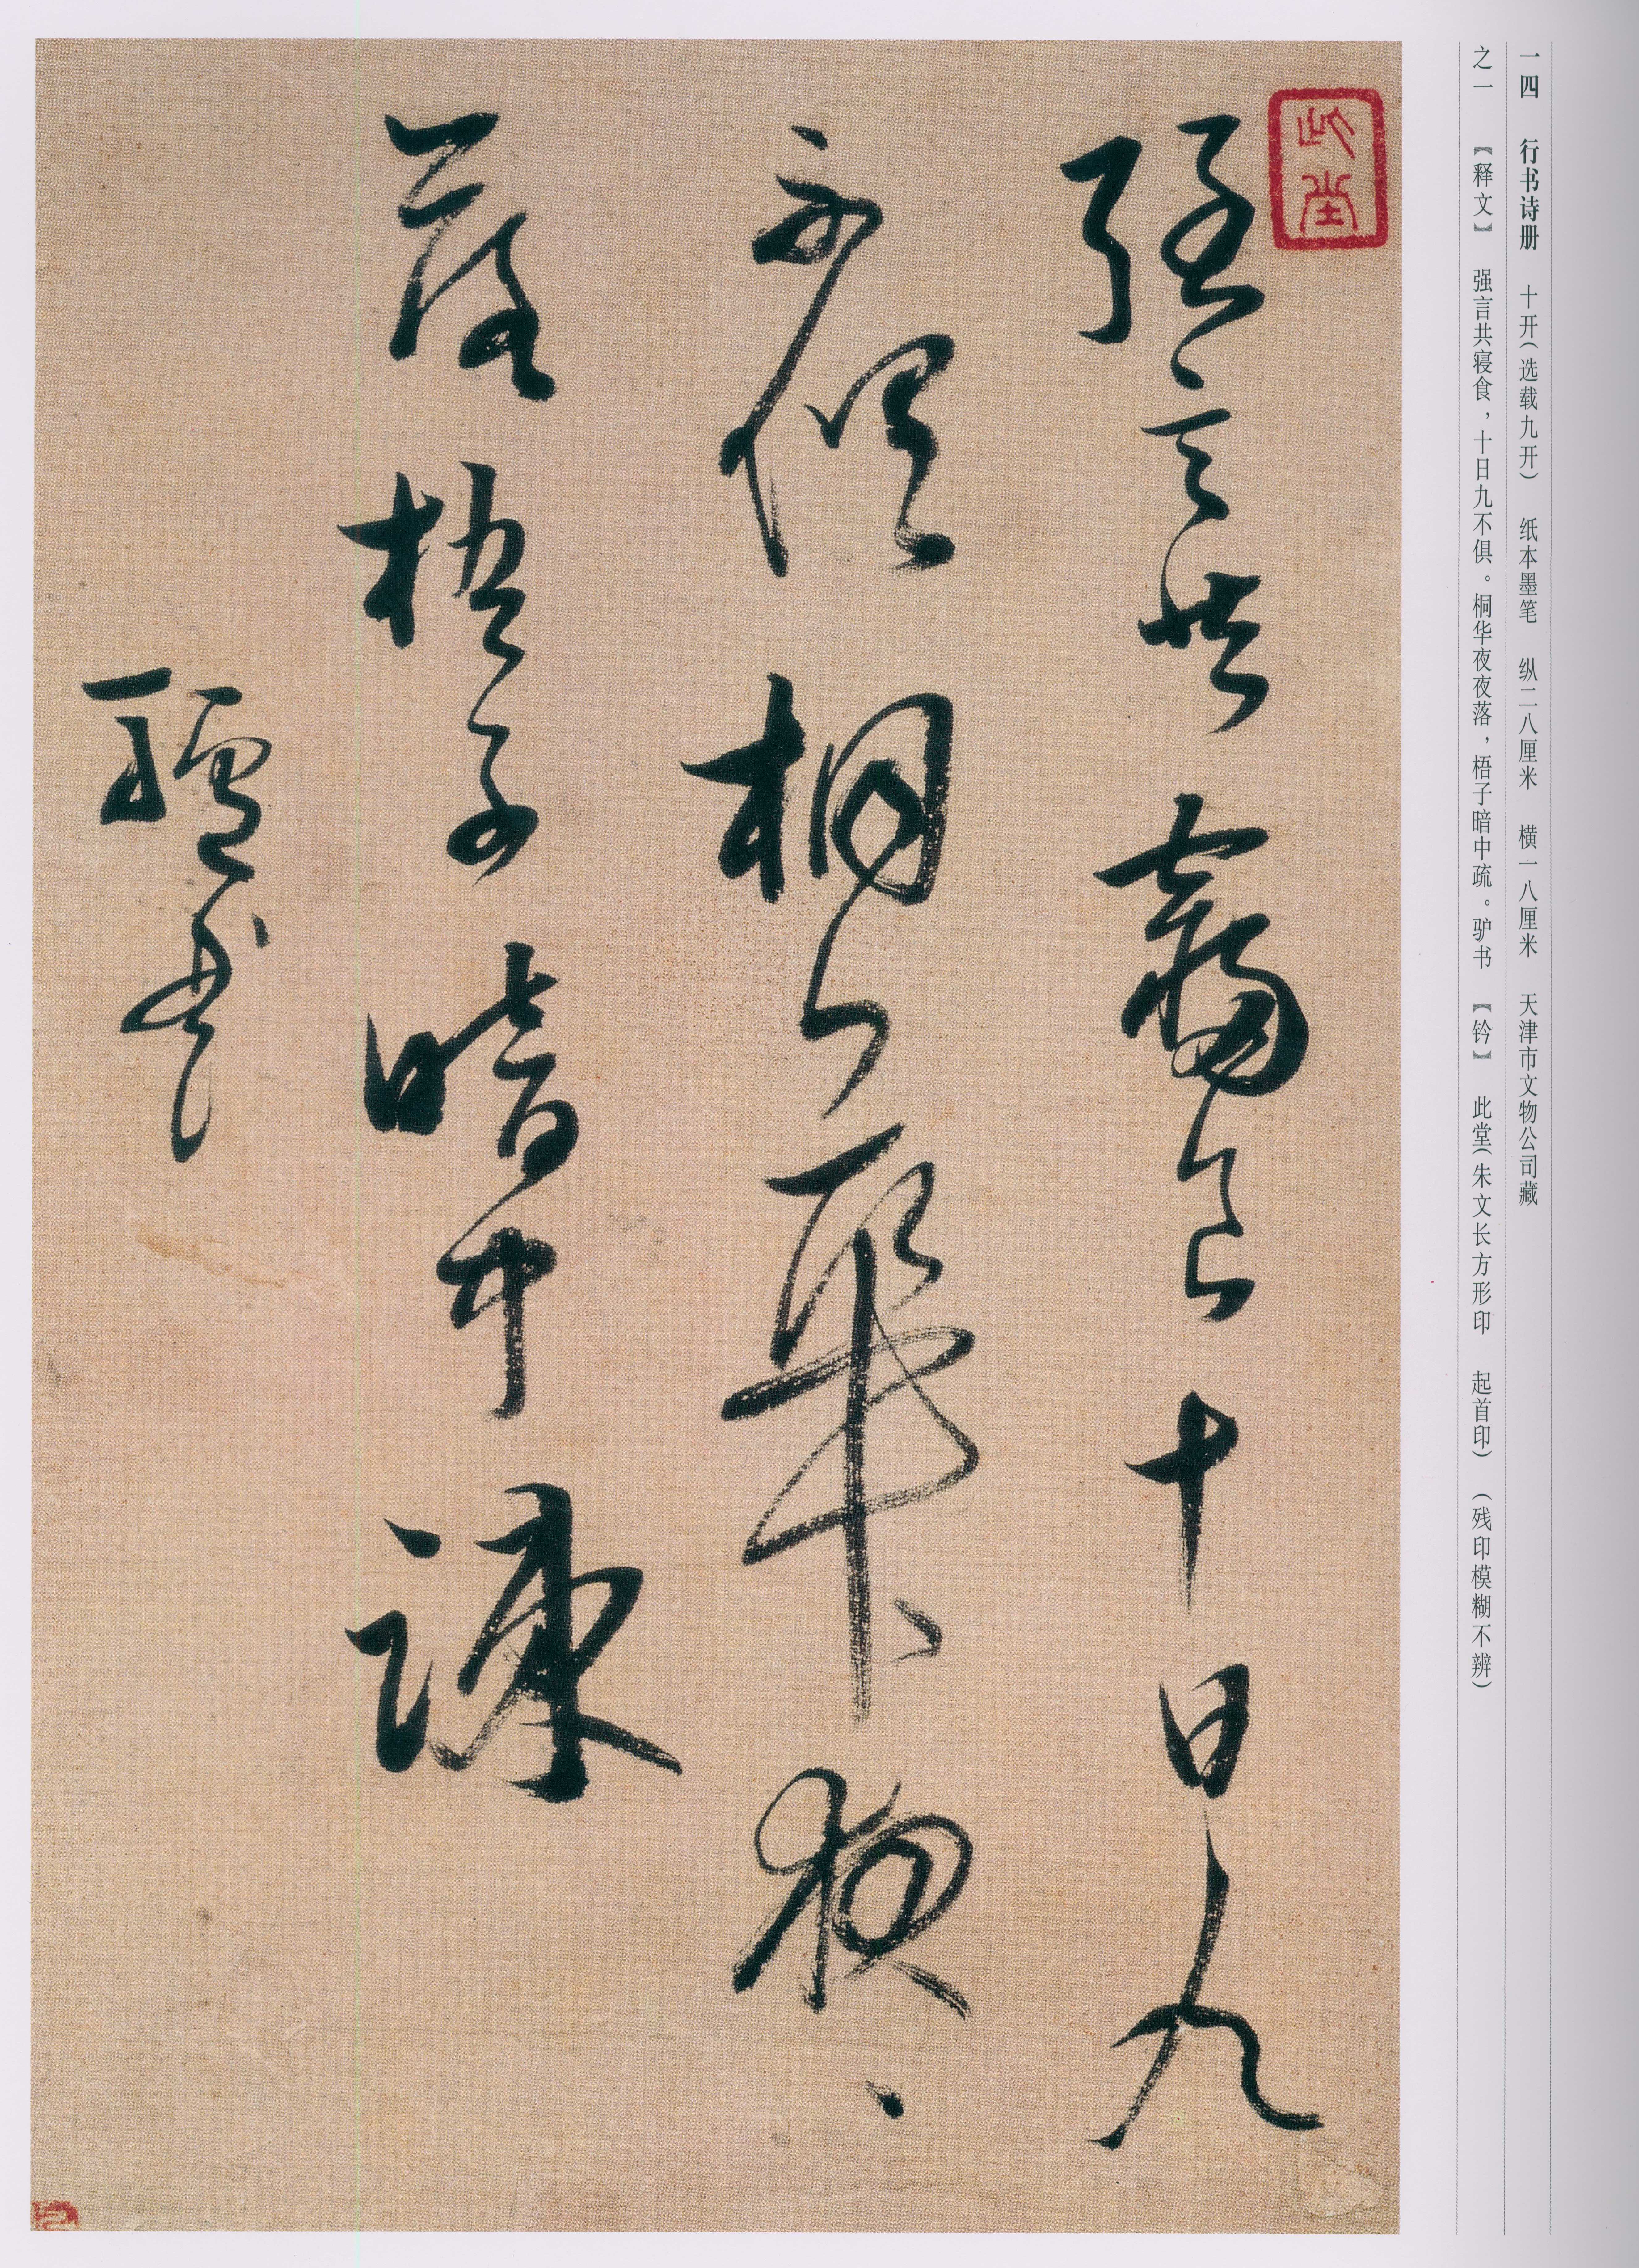 一四 行书诗册 十开（选载九开） 纸本墨笔 纵二八厘米 横一八厘米 天津市文物公司藏
之一 【释文】 强言共寝食，十日九不俱。桐华夜夜落，梧子暗中疏。驴书 【钤】 此堂（朱文长方形印 起首印）（残印模糊不辨）
此堂
强言共寝食十日九
不俱桐华夜〻
落梧子暗中疎
驢书